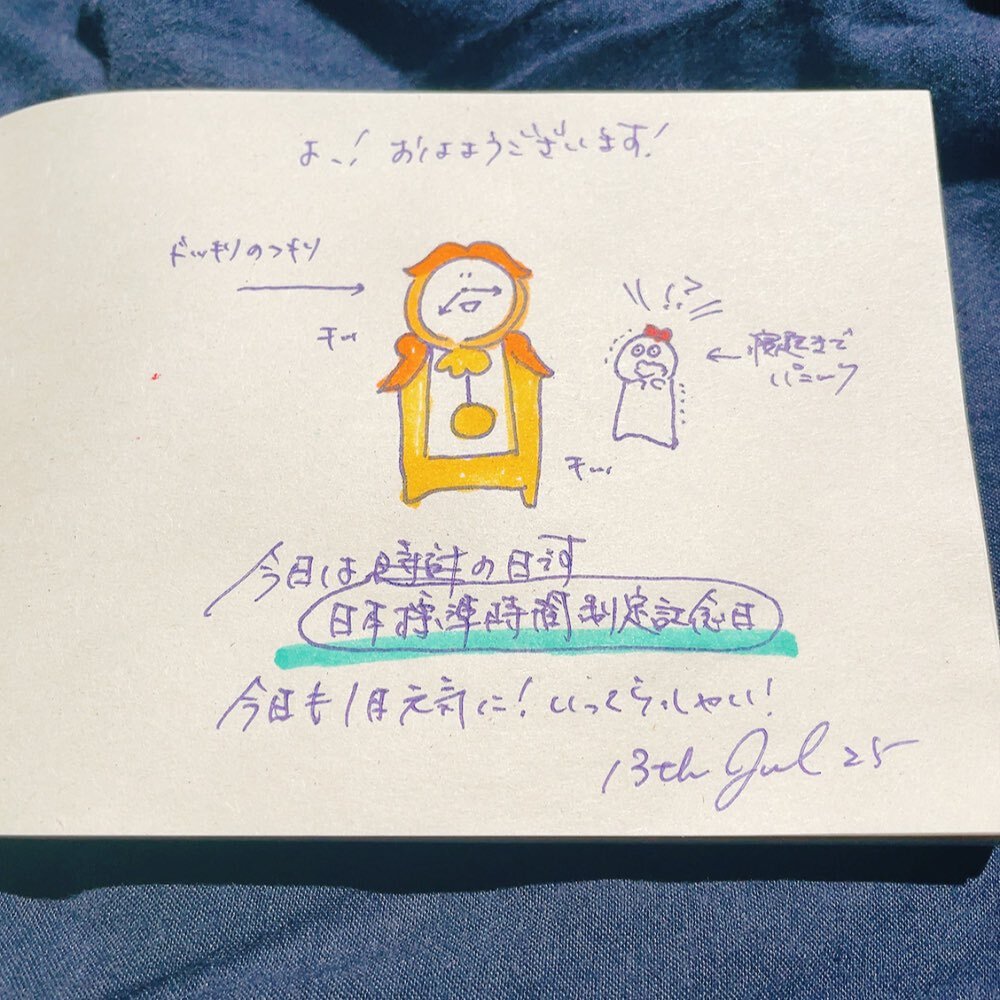 よっ！おはようございます！
ドッキリのつもり
チッ
!?
寝起きで
パニック
チッ
今日は時計の日です
日本標準時間制定記念日
今日も1日元気に！いってらっしゃい！
13th Jul 25